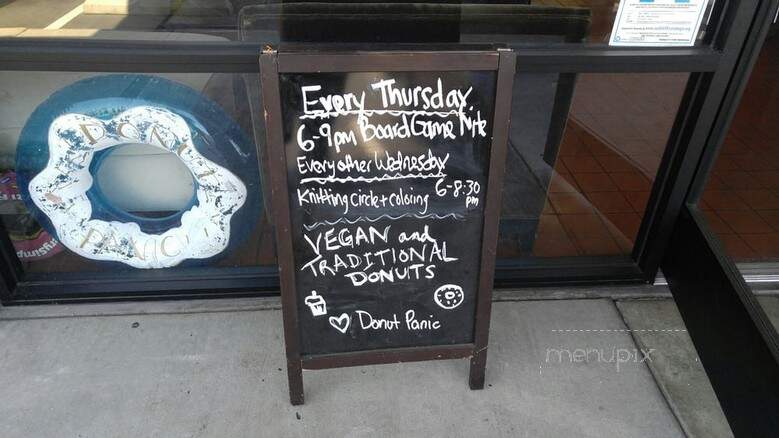 Every Thursday.
6-9pm Board Game Nite
Every other Wednesday
Knitting circle + coloring 6-8:30 pm
VEGAN and
TRADITIONAL
DONUTS
Donut Panic
DONUT
PANIC
menupix